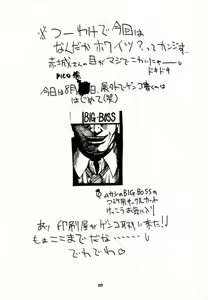 ※つーわけで今回は
なんだかホワイツ?ってカンジす
赤城さんの目がマジでこわいにゃー
ドキドキ
PICO
今日は8月 日、屋外でゲンコ書くのは
はじめて(笑)
BIG・BOSS
ムカシのBIG・BOSSの
サークルカット
けっこうお気に入り
あっ 印刷屋がゲンコ取りに来た!!
もぉここまでだな……
でわでわ♡